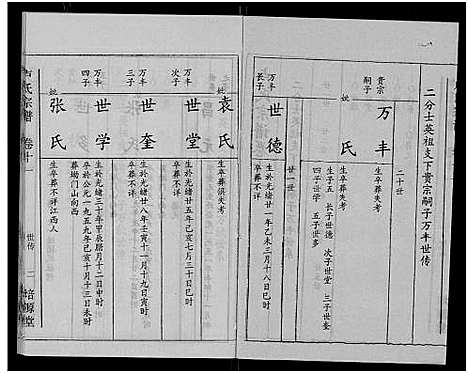 二分士英祖支下贵宗嗣子万丰世传
二十世
贵宗
嗣子
万丰
生卒葬失考
妣
氏
生卒葬失考
生子五 长子世德 次子世堂 三子世奎
四子世学 五子世多
廿一世
万丰
长子
世德
生於光绪廿一年乙未三月十八日巳时
卒葬不详
妣
袁氏
生卒葬俱失考
万丰
次子
世堂
生於光绪廿五年己亥七月三日未时
卒葬不详
万丰
三子
世奎
生於光绪廿八年壬寅十一月十九日寅时
卒葬不详
万丰
四子
世学
生於光绪三十年甲辰腊月十二日申时
卒於公元一九五九年己亥十月十三日未时
葬塌门山向西
妣
张氏
生卒葬不详江西人
氏宗谱
卷十一
世传
二
培源堂